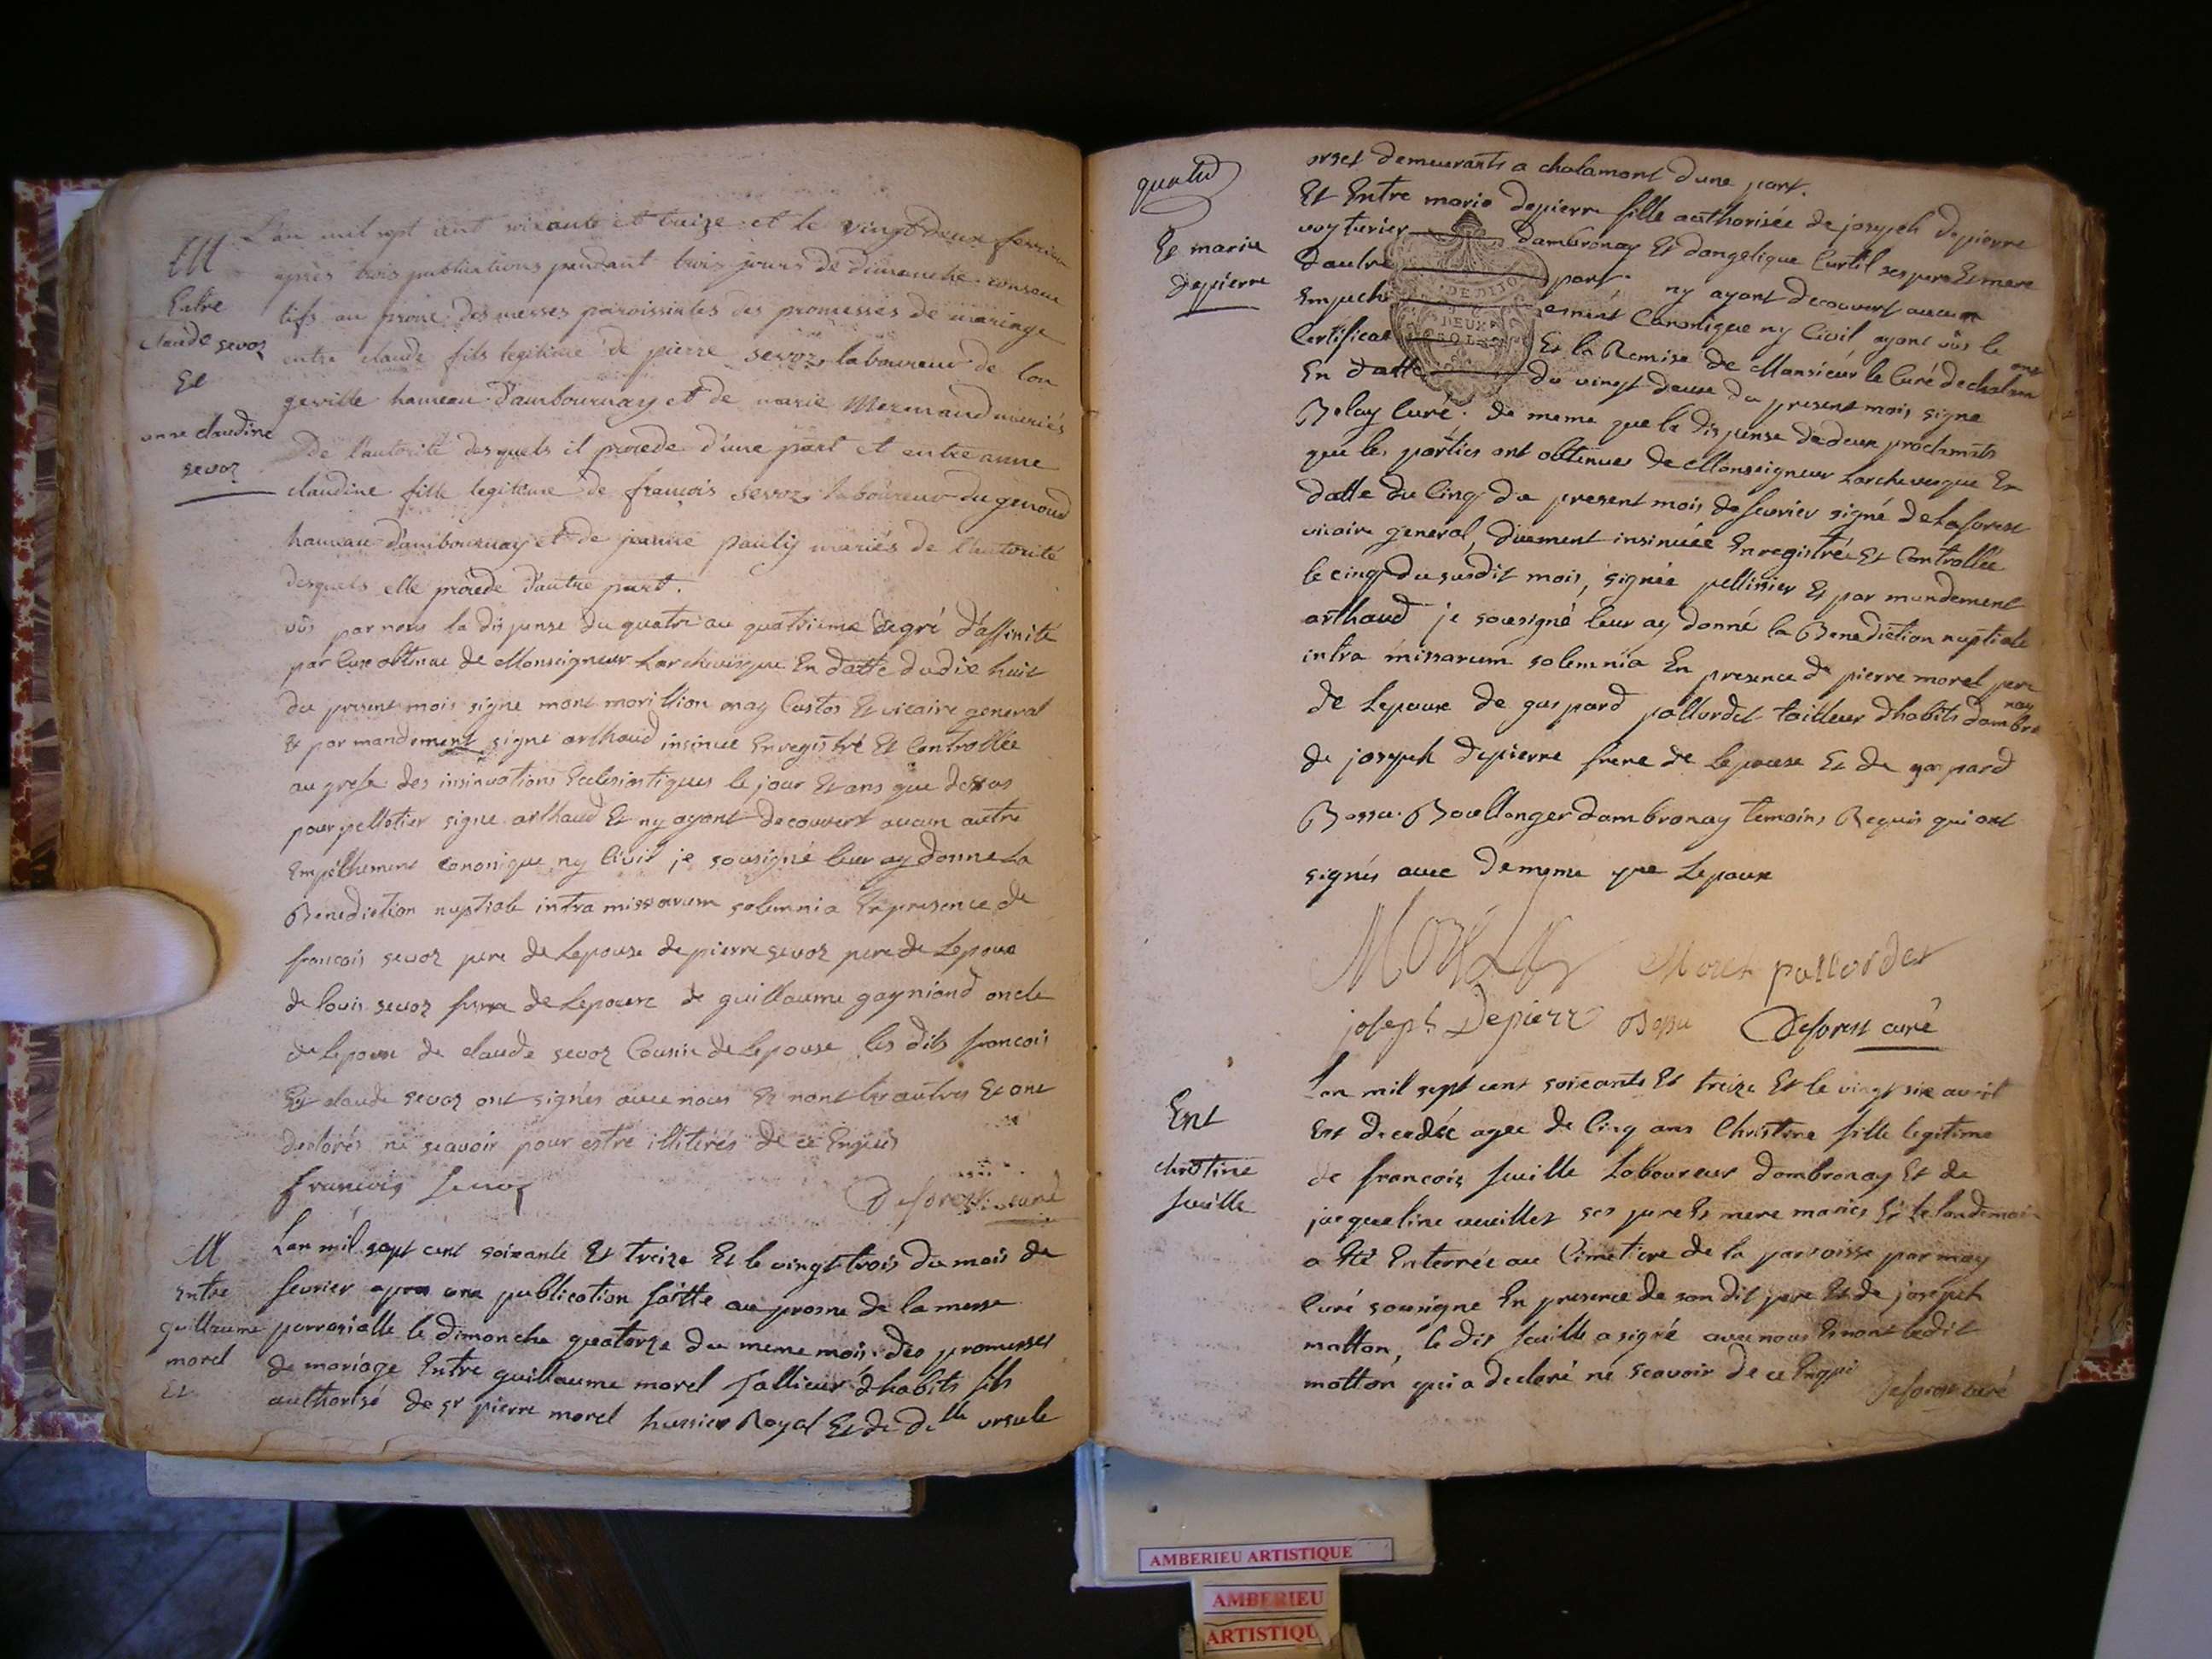 M
Entre
claude sevoz
Et
anne claudine
sevoz
L'an mil sept cent soixante et treize et le vingt deux fevrier
après trois publications pendant trois jours de dimanche consecu
tifs au prone des messes paroissiales des promesses de mariage
entre claude fils legitime de pierre sevoz, laboureur de lon
geville hameau d'ambournay et de marie Mermand mariés
De l'autorité desquels il procede d'une part et entre anne
claudine fille legitime de françois sevoz, laboureur du genoud
hameau d'ambournay et de jeanne pauly mariés de l'autorité
desquels elle procede d'autre part.
vûs par nous la dispense du quatre au quatrième degré d'affinité
par Eux obtenue de Monseigneur Larchevesque En datte du dix huit
du present mois signe mont morillion Custos Et vicaire general
Et par mandement signe arthaud insinue Enregistré Et Controllée
au grefe des insinuations Ecclesiastiques le jour Et ans que dessus
pour pelletier signe arthaud Et ny ayant decouvert aucun autre
Empêchement canonique ny Civil je sousigné leur ay donne La
Benediction nuptiale intra missarum solemnia En presence de
francois sevoz pere de Lepouse de pierre sevoz pere de Lepoux
de louis sevoz frere de Lepouse de guillaume gayniond oncle
de lepoux de claude sevoz Cousin de Lepouse les dits francois
Et claude sevoz ont signés avec nous Et nont les autres Et ont
declarés ne scavoir pour estre illiterés de ce Enquis
francois sevoz
Deforest curé
M
Entre
guillaume
morel
Et
Lan mil sept cent soixante Et treize Et le vingt trois du mois de
fevrier apres une publication faitte au prosne de la messe
parrosialle le dimanche quatorze du meme mois des promesses
de mariage Entre guillaume morel tallieur dhabits fils
authorisé de sr pierre morel hussier Royal Et de dlle ursule
Et marie
depierre
orset demeurants a chalamont dune part.
Et Entre marie depierre fille authorisée de joseph depierre
voyturier dambronay Et dangelique Curtil ses pere Et mere
dautre part. ny ayant decouvert aucun
Empechement Canonique ny Civil ayant vûs le
Certificat Et la Remise de Monsieur le Curé de chalamont
En datte du vingt deux du present mois signe
Belay Curé. de meme que la dispense de deux proclamats
que les parties ont obtenues de Monseigneur Larchevesque En
datte du Cinq du present mois de fevrier signé de Laforest
vicaire general, duement insinuée Enregistrée Et Controllée
le cinq du susdit mois, signée pellissier Et par mandement
arthaud je sousigné leur ay donné la Benediction nuptiale
intra missarum solemnia En presence de pierre morel pere
de Lepoux de gaspard pallordet tailleur dhabits dambronay
de joseph depierre frere de Lepouse Et de gaspard
Bossu Boullanger dambronay temoins Requis qui ont
signés avec de meme que Lepoux
Morel Morel pallordet
joseph Depierre Bossu Deforest curé
Ent
christine
fuille
Lan mil sept cent soixante Et treize Et le vingt six avril
Est decedée agée de Cinq ans Christine fille legitime
de francois fuille Laboureur dambronay Et de
jacqueline ses pere Et mere mariés Et le landemain
a Eté Enterrée au Cimetiere de la parroisse par moy
Curé sousigne En presence de son dit pere Et de joseph
motton, le dit fuille a signé avec nous Et non ledit
motton qui a declaré ne scavoir de ce Enqui Deforest curé
DE DIJO
DEUX
SOLS
AMBERIEU ARTISTIQUE
AMBERIEU
ARTISTIQU